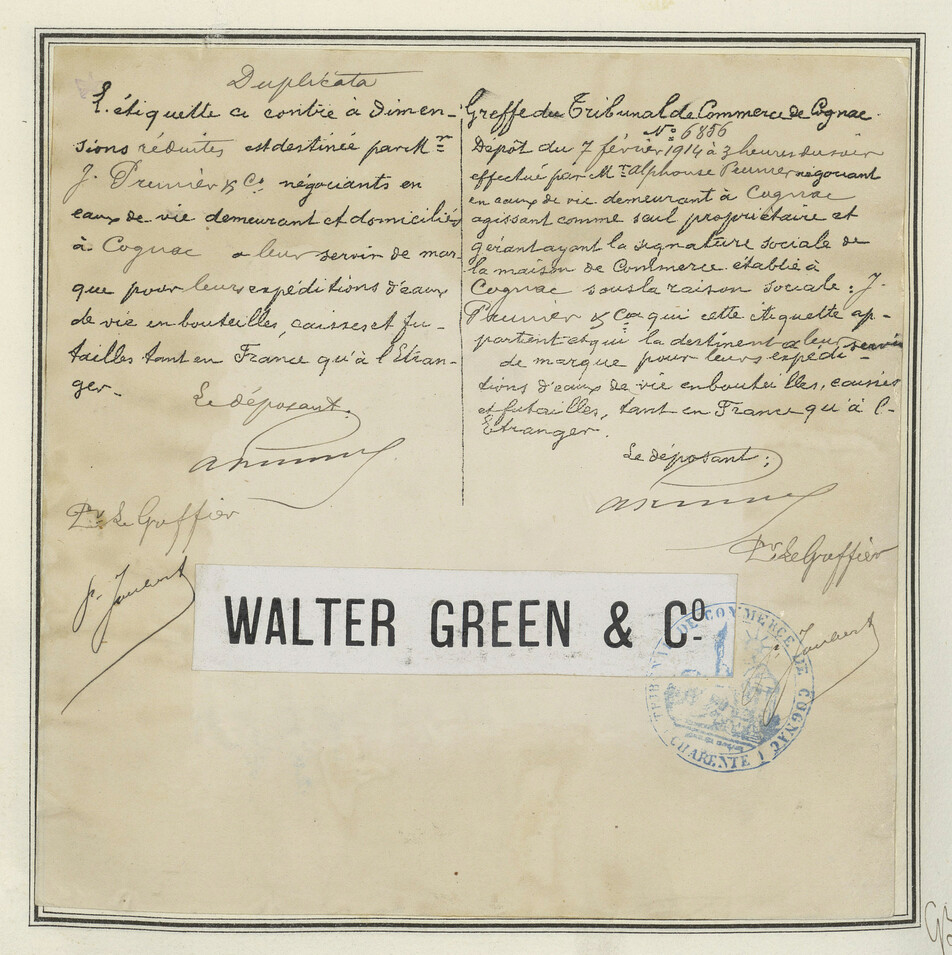 Duplicata
L'étiquette ci contre à dimen-
sions réduites est destinée par Mr
J. Prunier & Co négociants en
eaux de vie demeurant et domiciliés
à Cognac a leur servir de mar
que pour leurs expéditions d'eaux
de vie en bouteilles, caisses et fu-
tailles tant en France qu'à l'Etran-
ger.
Le déposant.
Pr Le Greffier
Joubert
Greffe du Tribunal de Commerce de Cognac.
No 6856
Dépôt du 7 février 1914 à 3 heures du soir
effectué par Mr Alphonse Prunier négociant
en eaux de vie demeurant à Cognac
agissant comme seul propriétaire et
gérant ayant la signature sociale de
la maison de Commerce établie à
Cognac sous la raison sociale: J.
Prunier & Co qui cette étiquette ap-
partient et qui la destinent a leur servir
de marque pour leurs expédi-
tions d'eaux de vie en bouteilles, caisses
et futailles, tant en France qu'à l'-
Etranger.
Le déposant;
Pr Le Greffier
Joubert
WALTER GREEN & Co.
TRIBUNAL DE COMMERCE DE COGNAC
CHARENTE